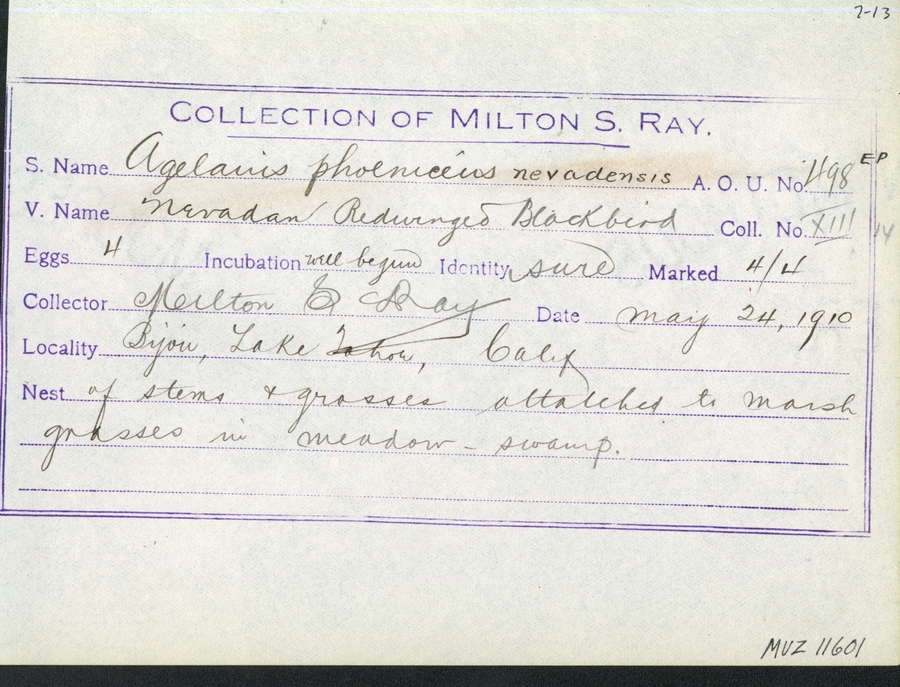 7-13
COLLECTION OF MILTON S. RAY.
S. Name Agelaius phoeniceus nevadensis A. O. U. No. 498 EP
V. Name Nevadan Redwinged Blackbird Coll. No. XIII 14
Eggs 4 Incubation well begun Identity sure Marked 4/4
Collector Milton S Ray Date May 24, 1910
Locality Bijou, Lake Tahoe, Calif
Nest of stems & grasses attatched to marsh
grasses in meadow - swamp.
MVZ 11601